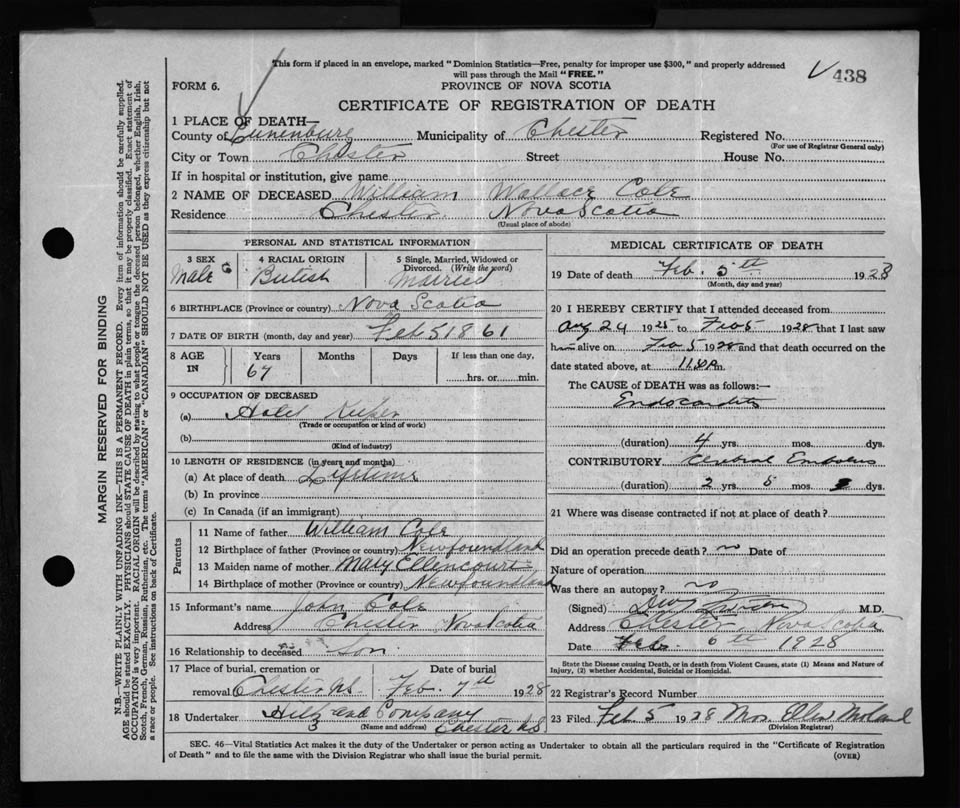 This form if placed in an envelope, marked "Dominion Statistics—Free, penalty for improper use $300," and properly addressed
will pass through the Mail "FREE."
438
FORM 6.
PROVINCE OF NOVA SCOTIA
CERTIFICATE OF REGISTRATION OF DEATH
1 PLACE OF DEATH—
County of Lunenburg Municipality of Chester Registered No.
(For use of Registrar General only)
City or Town Chester Street House No.
If in hospital or institution, give name
2 NAME OF DECEASED William Wallace Cole
Residence Chester Nova Scotia
(Usual place of abode)
PERSONAL AND STATISTICAL INFORMATION
3 SEX 4 RACIAL ORIGIN 5 Single, Married, Widowed or
Divorced. (Write the word)
Male British Married
6 BIRTHPLACE (Province or country) Nova Scotia
7 DATE OF BIRTH (month, day and year) Feb 5 1861
8 AGE IN Years Months Days If less than one day,
67 hrs. or min.
9 OCCUPATION OF DECEASED
(a) Hotel Keeper
(Trade or occupation or kind of work)
(b)
(Kind of industry)
10 LENGTH OF RESIDENCE (in years and months)
(a) At place of death Lifetime
(b) In province
(c) In Canada (if an immigrant)
Parents
11 Name of father William Cole
12 Birthplace of father (Province or country) Newfoundland
13 Maiden name of mother Mary Ellincourt
14 Birthplace of mother (Province or country) Newfoundland
15 Informant's name John Cole
Address Chester Nova Scotia
16 Relationship to deceased Son
17 Place of burial, cremation or Date of burial
removal Chester N.S. Feb. 7th 1928
18 Undertaker Hilt and Company
(Name and address) Chester N.S.
3
MEDICAL CERTIFICATE OF DEATH
19 Date of death Feb. 5th 1928
(Month, day and year)
20 I HEREBY CERTIFY that I attended deceased from
Aug 24 1925 to Feb 5 1928 that I last saw
h alive on Feb 5 1928 and that death occurred on the
date stated above, at m.
The CAUSE of DEATH was as follows:—
Endocarditis
(duration) 4 yrs. mos. dys.
CONTRIBUTORY Cerebral Embolus
(duration) 2 yrs. 5 mos. dys.
21 Where was disease contracted if not at place of death?
Did an operation precede death? no Date of
Nature of operation
Was there an autopsy? no
(Signed) M.D.
Address Chester, Nova Scotia
Date Feb. 6th 1928
State the Disease causing Death, or in death from Violent Causes, state (1) Means and Nature of
Injury, (2) whether Accidental, Suicidal or Homicidal.
22 Registrar's Record Number
23 Filed Feb. 5 1928 Mrs.
(Division Registrar)
SEC. 46—Vital Statistics Act makes it the duty of the Undertaker or person acting as Undertaker to obtain all the particulars required in the "Certificate of Registration
of Death" and to file the same with the Division Registrar who shall issue the burial permit.
(OVER)
MARGIN RESERVED FOR BINDING
N.B.—WRITE PLAINLY WITH UNFADING INK—THIS IS A PERMANENT RECORD. Every item of information should be carefully supplied.
AGE should be stated EXACTLY. PHYSICIANS should STATE CAUSE OF DEATH in plain terms, that it may be properly classified. Exact statement of
OCCUPATION is very important. RACIAL ORIGIN will be described by stating to what people or tongue the deceased person belonged, whether English, Irish,
Scotch, French, German, Russian, Ruthenian, etc. The terms "AMERICAN" or "CANADIAN" SHOULD NOT BE USED as they express citizenship but not
a race or people. See instructions on back of Certificate.